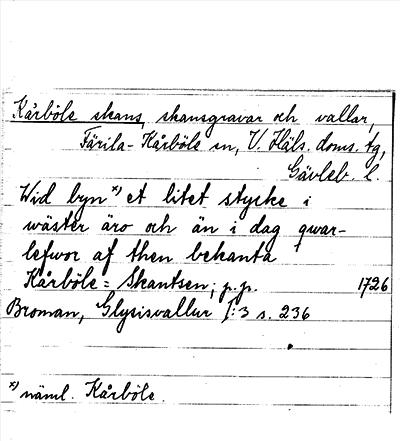 Kårböle skans, skansgravar och vallar,
Färila-Kårböle sn, V. Häls. doms. tg,
Gävleb. l.
Wid byn x) et litet stycke i
wäster äro och än i dag qwar-
lefwor af then bekanta
Kårböle=Skantsen; p.p. 1726
Broman, Glysisvallur I:3 s. 236
x) näml. Kårböle.